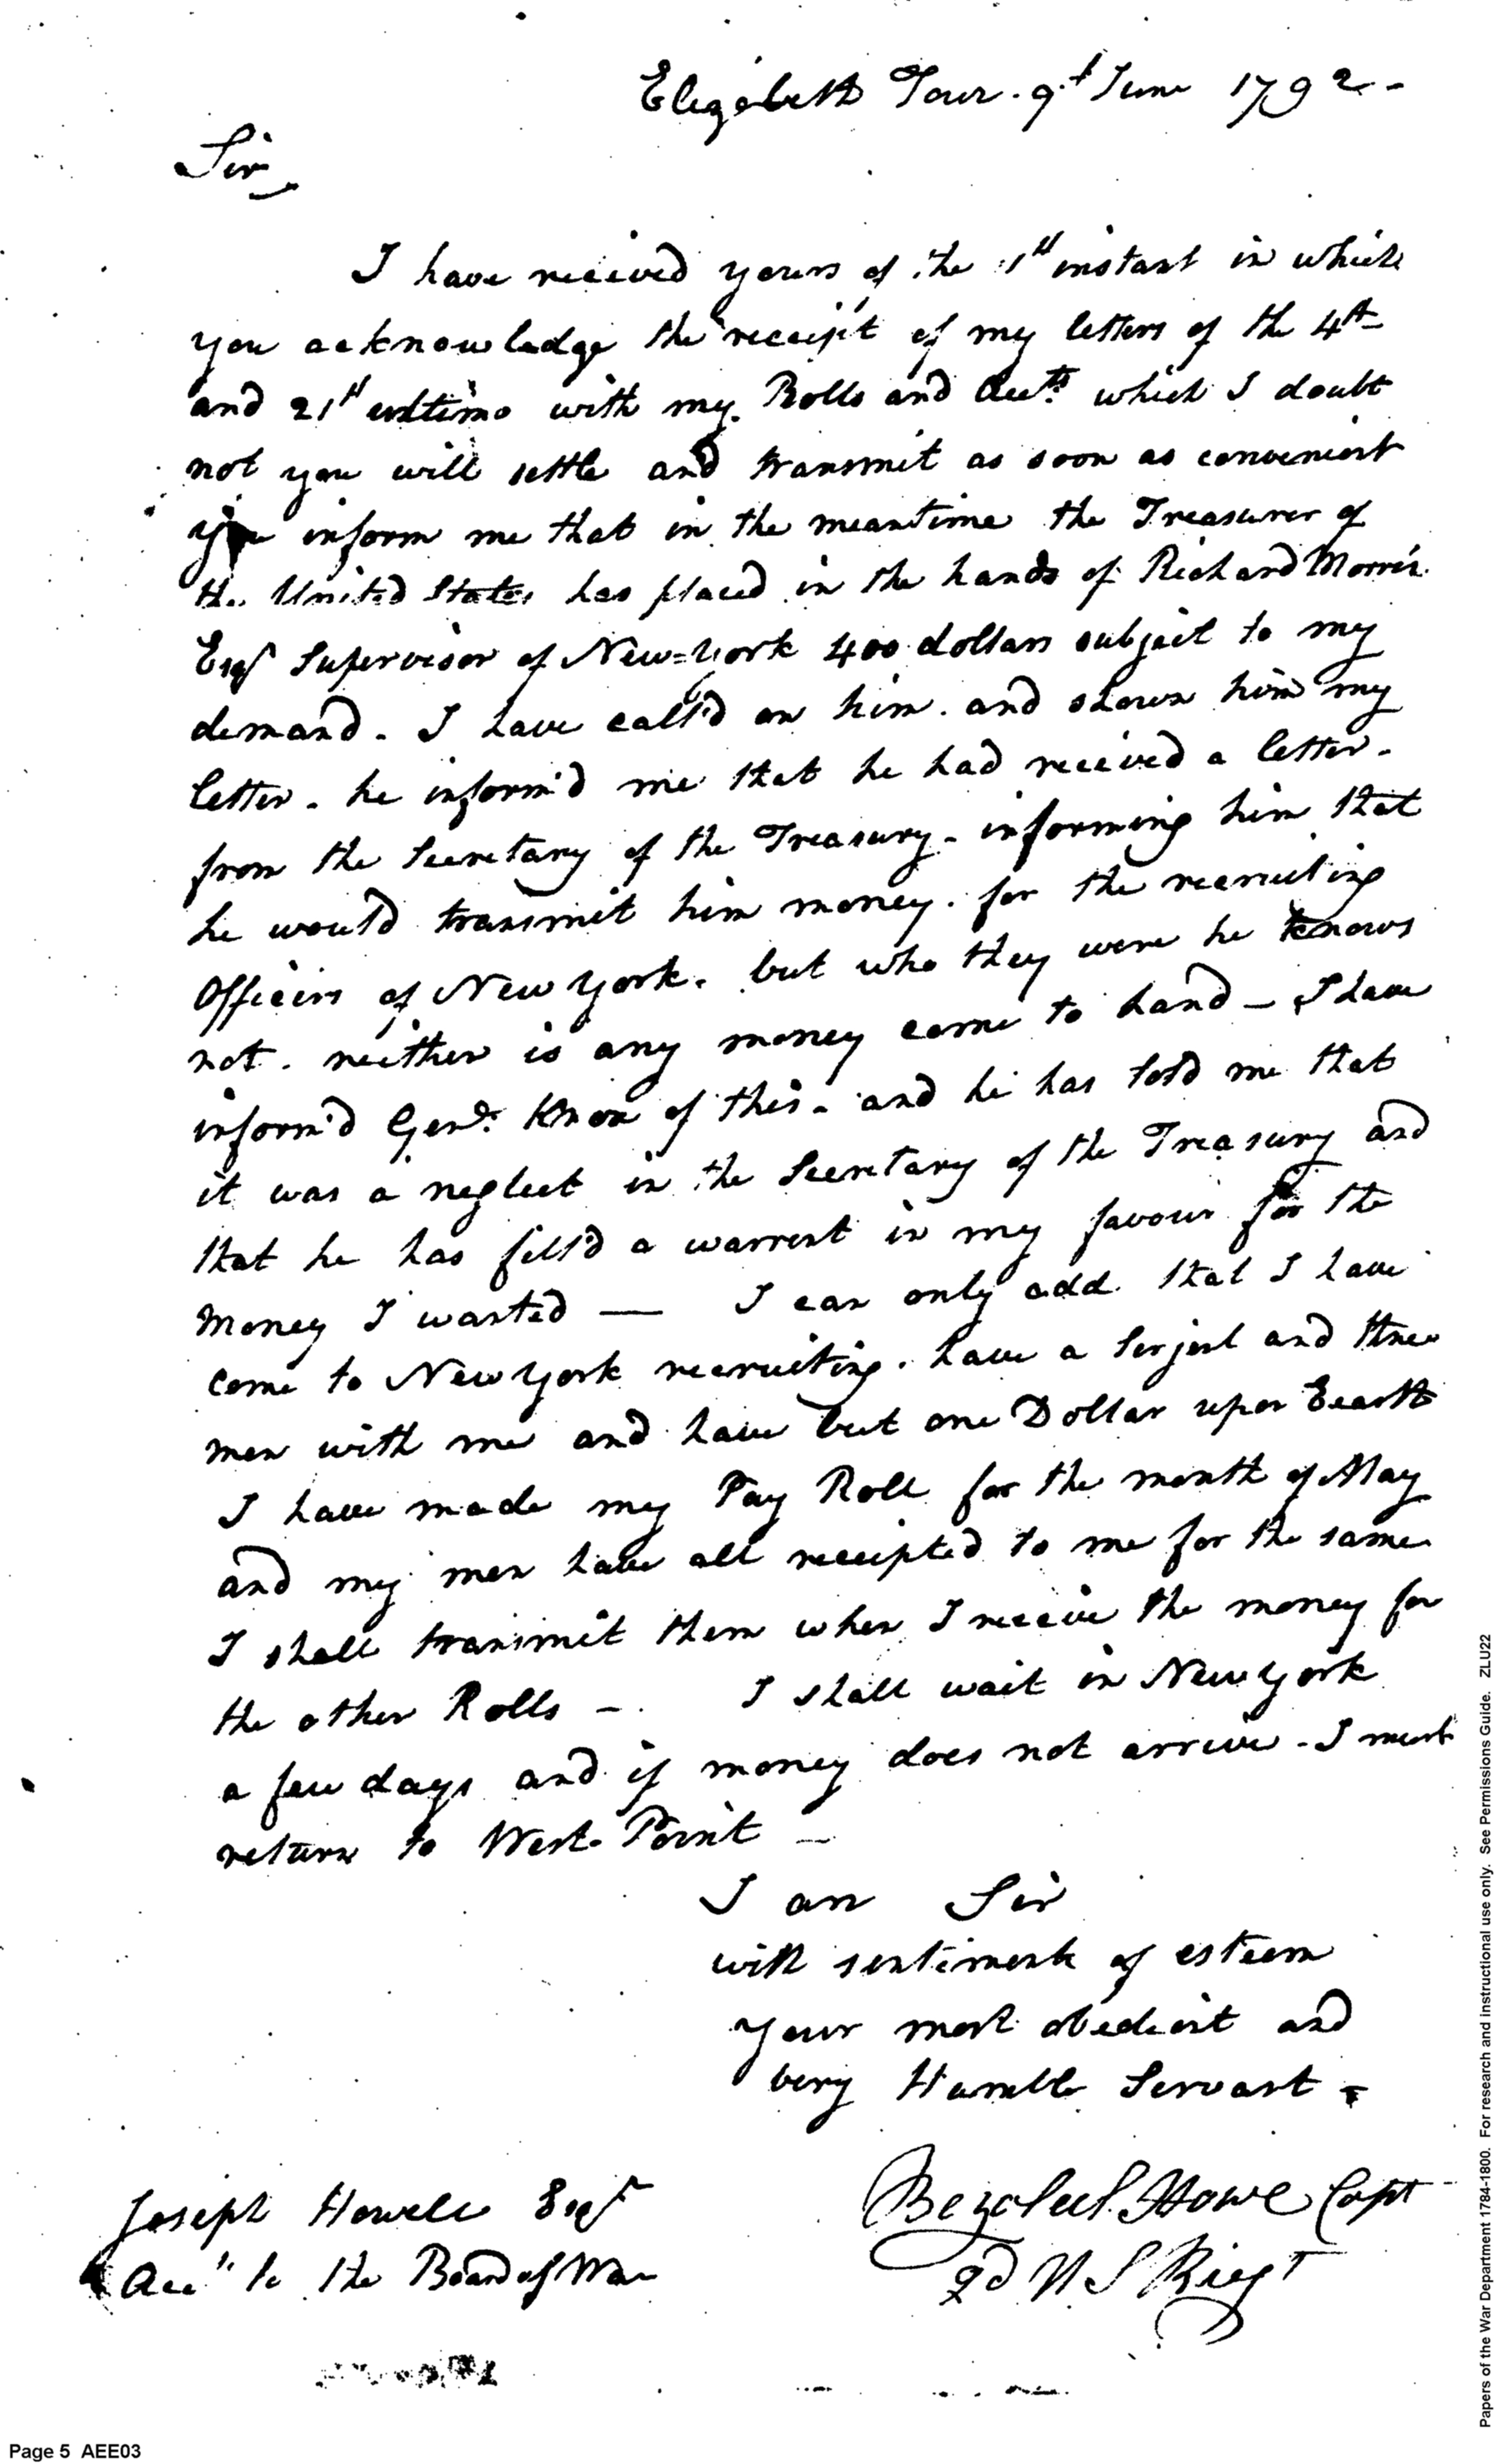 Elizabeth Town. 9.t June 1792 -
Sir
I have received yours of the 1st instant in which
you acknowledge the receipt of my letters of the 4th
and 21st ultimo with my Rolls and Accts which I doubt
not you will settle and transmit as soon as convenient
you inform me that in the meantime the Treasurer of
the United States has placed in the hands of Richard Morris
Esqr Supervisor of New=York 400 dollars subject to my
demand. I have call'd on him. and shown him my
letter. he inform'd me that he had received a letter.
from the Secretary of the Treasury - informing him that
he would transmit him money. for the recruiting
Officers of New York. but who they were he knows
not. neither is any money come to hand - I have
inform'd Genl. Knox of this. and he has told me that
it was a neglect in the Secretary of the Treasury and
that he has fill'd a warrent in my favour for the
money I wanted — I can only add that I have
come to New York recruiting. have a Serjent and three
men with me and have but one Dollar upon Eearth
I have made my Pay Roll for the month of May
and my men have all receipted to me for the same
I shall transmit them when I receive the money for
the other Rolls - I shall wait in New York
a few days and if money does not arrive - I must
return to West-Point -
I am Sir
with sentiments of esteem
your most obedient and
very Humble Servant
Bezaleel Howe Capt
2d U S Regt
Joseph Howell Esqr
Acct to the Board of War
Page 5 AEE03
Papers of the War Department 1784-1800. For research and instructional use only. See Permissions Guide. ZLU22